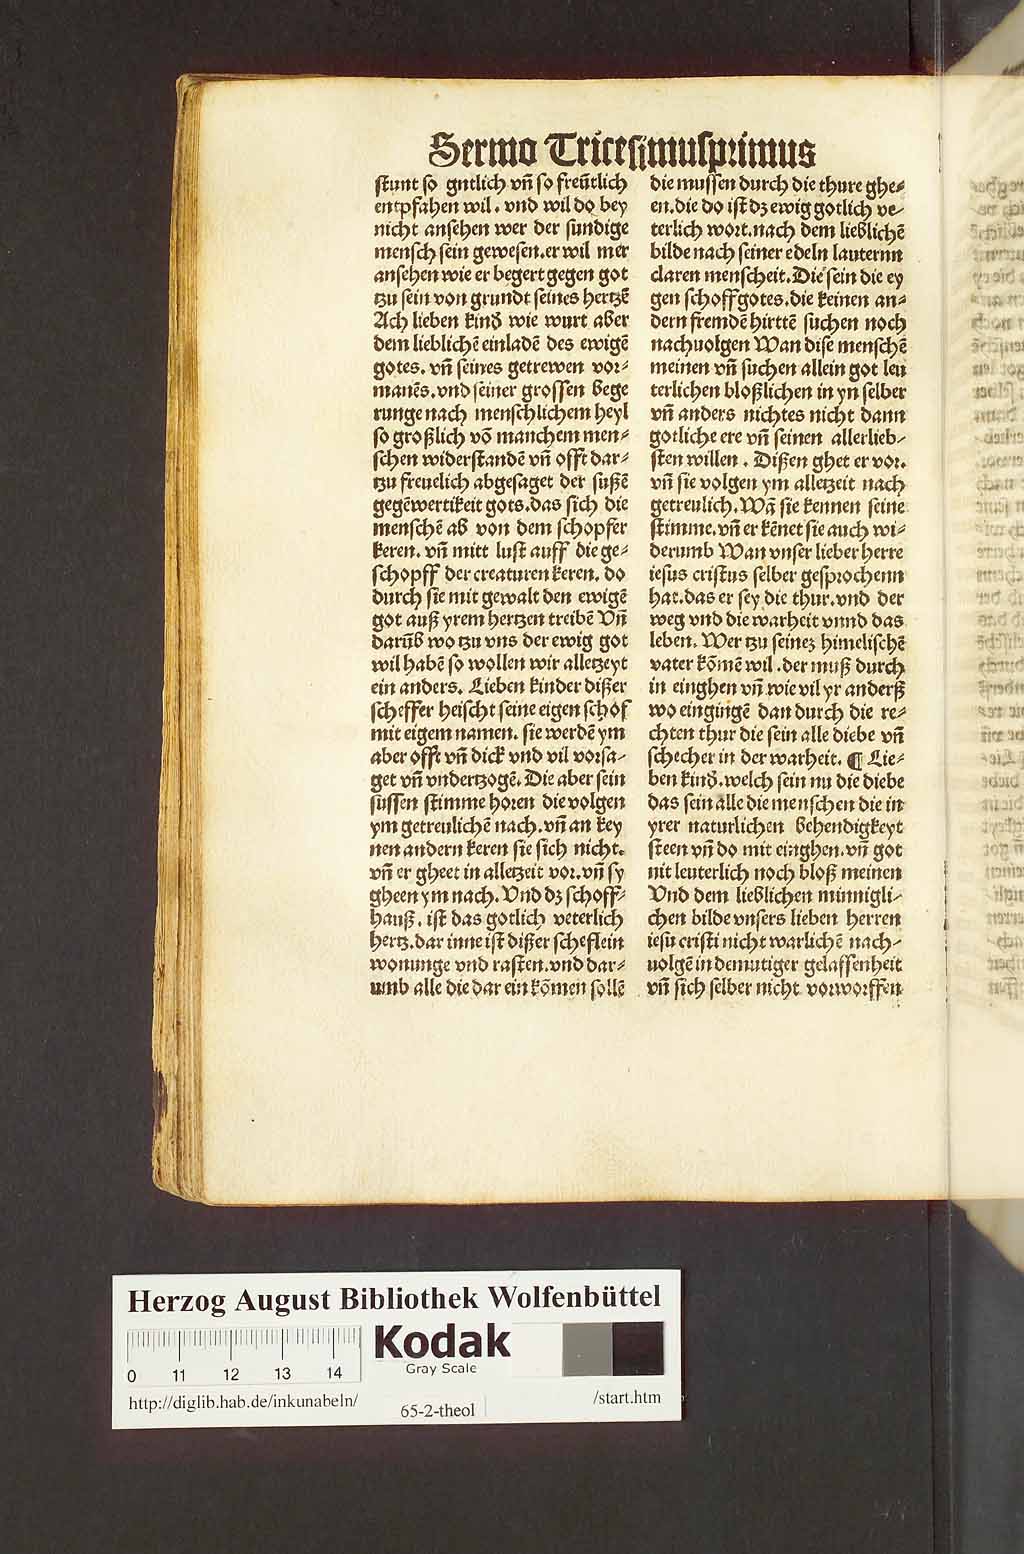 Sermo Tricesimusprimus
stunt so gutlich vñ so freūtlich
entpfahen wil. vnd wil do bey
nicht ansehen wer der sundige
mensch sein gewesen. er wil mer
ansehen wie er begert gegen got
tzu sein von grundt seines hertzē
Ach lieben kind wie wurt aber
dem lieblichē einladē des ewigē
gotes. vñ seines getrewen vor⸗
manēs. vnd seiner grossen bege
runge nach menschlichem heyl
so großlich vō manchem men⸗
schen widerstandē vñ offt dar⸗
tzu freuelich abgesaget der sußē
gegēwertikeit gots. das sich die
menschē ab von dem schopfer
keren. vñ mitt lust auff die ge⸗
schopff der creaturen keren. do
durch sie mit gewalt den ewigē
got auß yrem hertzen treibē Vñ
darūb wo tzu vns der ewig got
wil habē so wollen wir alletzeyt
ein anders. Lieben kinder dißer
scheffer heischt seine eigen schof
mit eigem namen. sie werdē ym
aber offt vñ dick vnd vil vorsa⸗
get vñ vndertzogē. Die aber sein
sussen stimme horen die volgen
ym getreulichē nach. vñ an key
nen andern keren sie sich nicht.
vñ er gheet in alletzeit vor. vñ sy
gheen ym nach. Vnd dz schoff⸗
hauß. ist das gotlich veterlich
hertz. dar inne ist dißer scheflein
wonunge vnd rasten. vnd dar⸗
umb alle die dar ein kōmen sollē
die mussen durch die thure ghe⸗
en. die do ist dz ewig gotlich ve⸗
terlich wort. nach dem lieblichē
bilde nach seiner edeln lauternn
claren menscheit. Die sein die ey
gen schoff gotes. die keinen an⸗
dern fremdē hirttē suchen noch
nachuolgen Wan dise menschē
meinen vñ suchen allein got leu
terlichen bloßlichen in yn selber
vñ anders nichtes nicht dann
gotliche ere vñ seinen allerlieb⸗
sten willen. Dißen ghet er vor.
vñ sie volgen ym alletzeit nach
getreulich. Wā sie kennen seine
stimme. vñ er kēnet sie auch wi⸗
derumb Wan vnser lieber herre
iesus cristus selber gesprochenn
hat. das er sey die thur. vnd der
weg vnd die warheit vnnd das
leben. Wer tzu seinez himelischē
vater kōmē wil. der muß durch
in einghen vñ wie vil yr anderß
wo eingingē dan durch die re⸗
chten thur die sein alle diebe vñ
schecher in der warheit. ¶ Lie⸗
ben kind. welch sein nu die diebe
das sein alle die menschen die in
yrer naturlichen behendigkeyt
steen vñ do mit einghen. vñ got
nit leuterlich noch bloß meinen
Vnd dem lieblichen minnigli⸗
chen bilde vnsers lieben herren
iesu cristi nicht warlichē nach⸗
uolgē in demutiger gelassenheit
vñ sich selber nicht vorworffen
Herzog August Bibliothek Wolfenbüttel
Kodak
Gray Scale
0 11 12 13 14
http://diglib.hab.de/inkunabeln/
65-2-theol
/start.htm